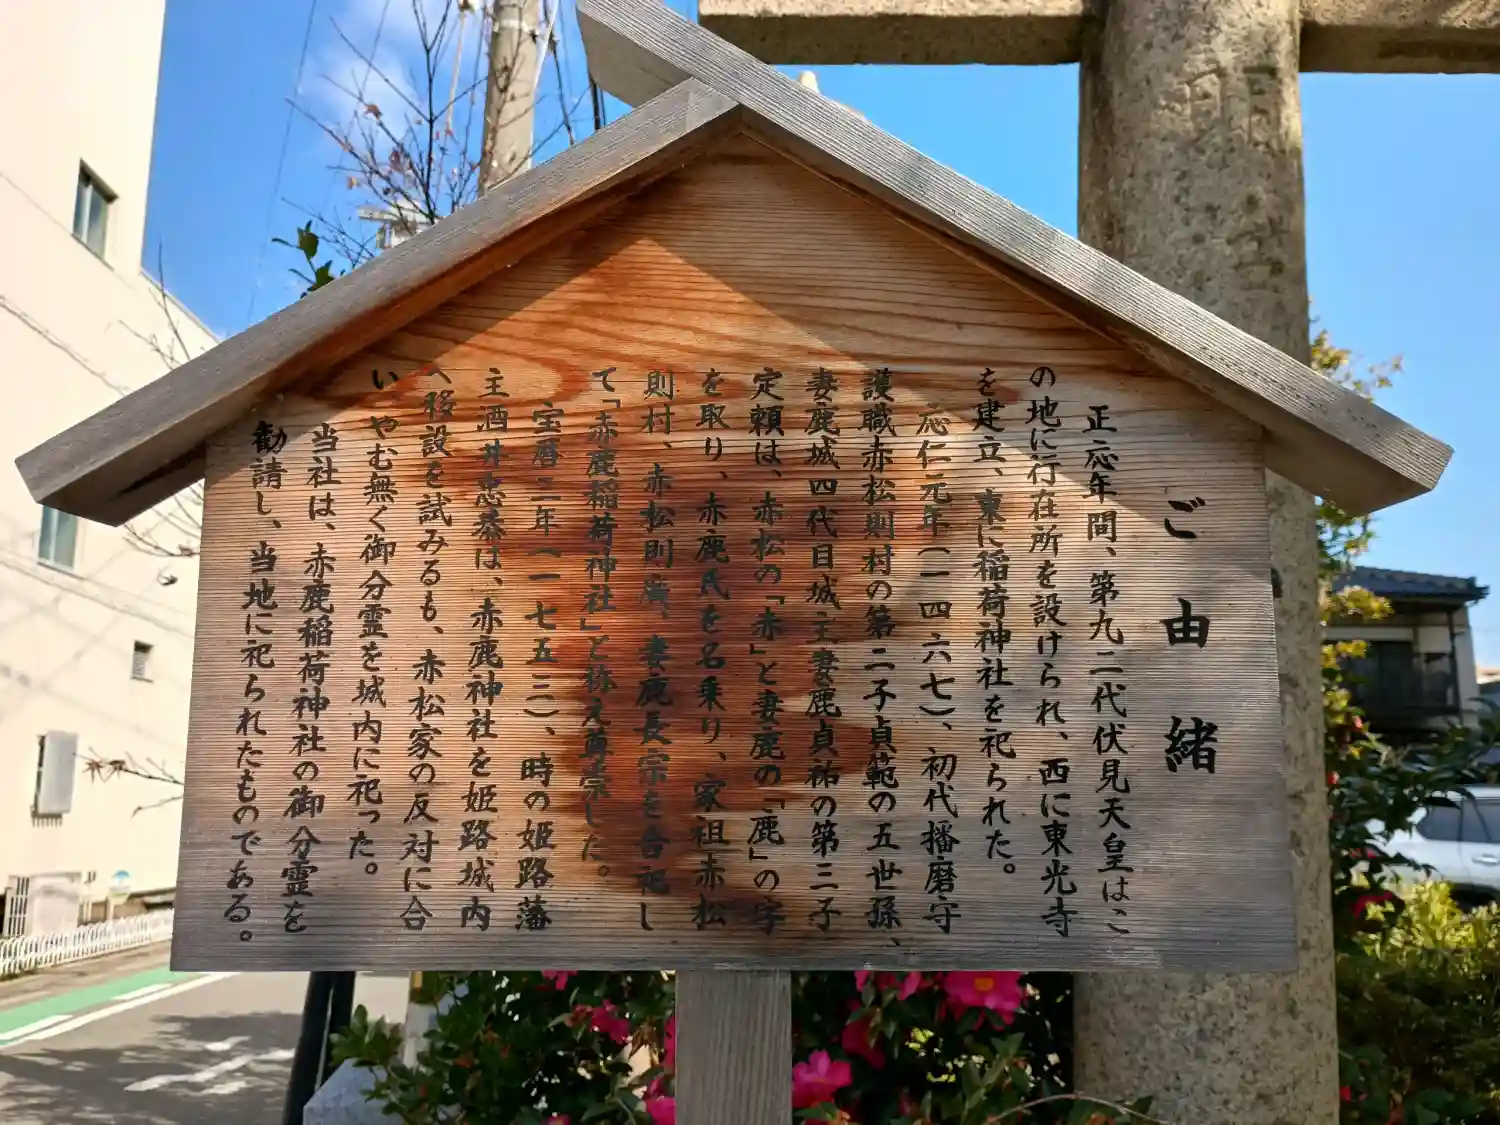 ご由緒
正応年間、第九二代伏見天皇はこ
の地に行在所を設けられ、西に東光寺
を建立、東に稲荷神社を祀られた。
応仁元年(一四六七)、初代播磨守
護職赤松則村の第二子貞範の五世孫、
妻鹿城四代目城主妻鹿貞祐の第三子
定頼は、赤松の「赤」と妻鹿の「鹿」の字
を取り、赤鹿氏を名乗り、家祖赤松
則村、赤松則廣、妻鹿長宗を合祀し
て「赤鹿稲荷神社」と称え尊崇した。
宝暦三年(一七五三)、時の姫路藩
主酒井忠恭は、赤鹿神社を姫路城内
へ移設を試みるも、赤松家の反対に合
い、やむ無く御分霊を城内に祀った。
当社は、赤鹿稲荷神社の御分霊を
勧請し、当地に祀られたものである。